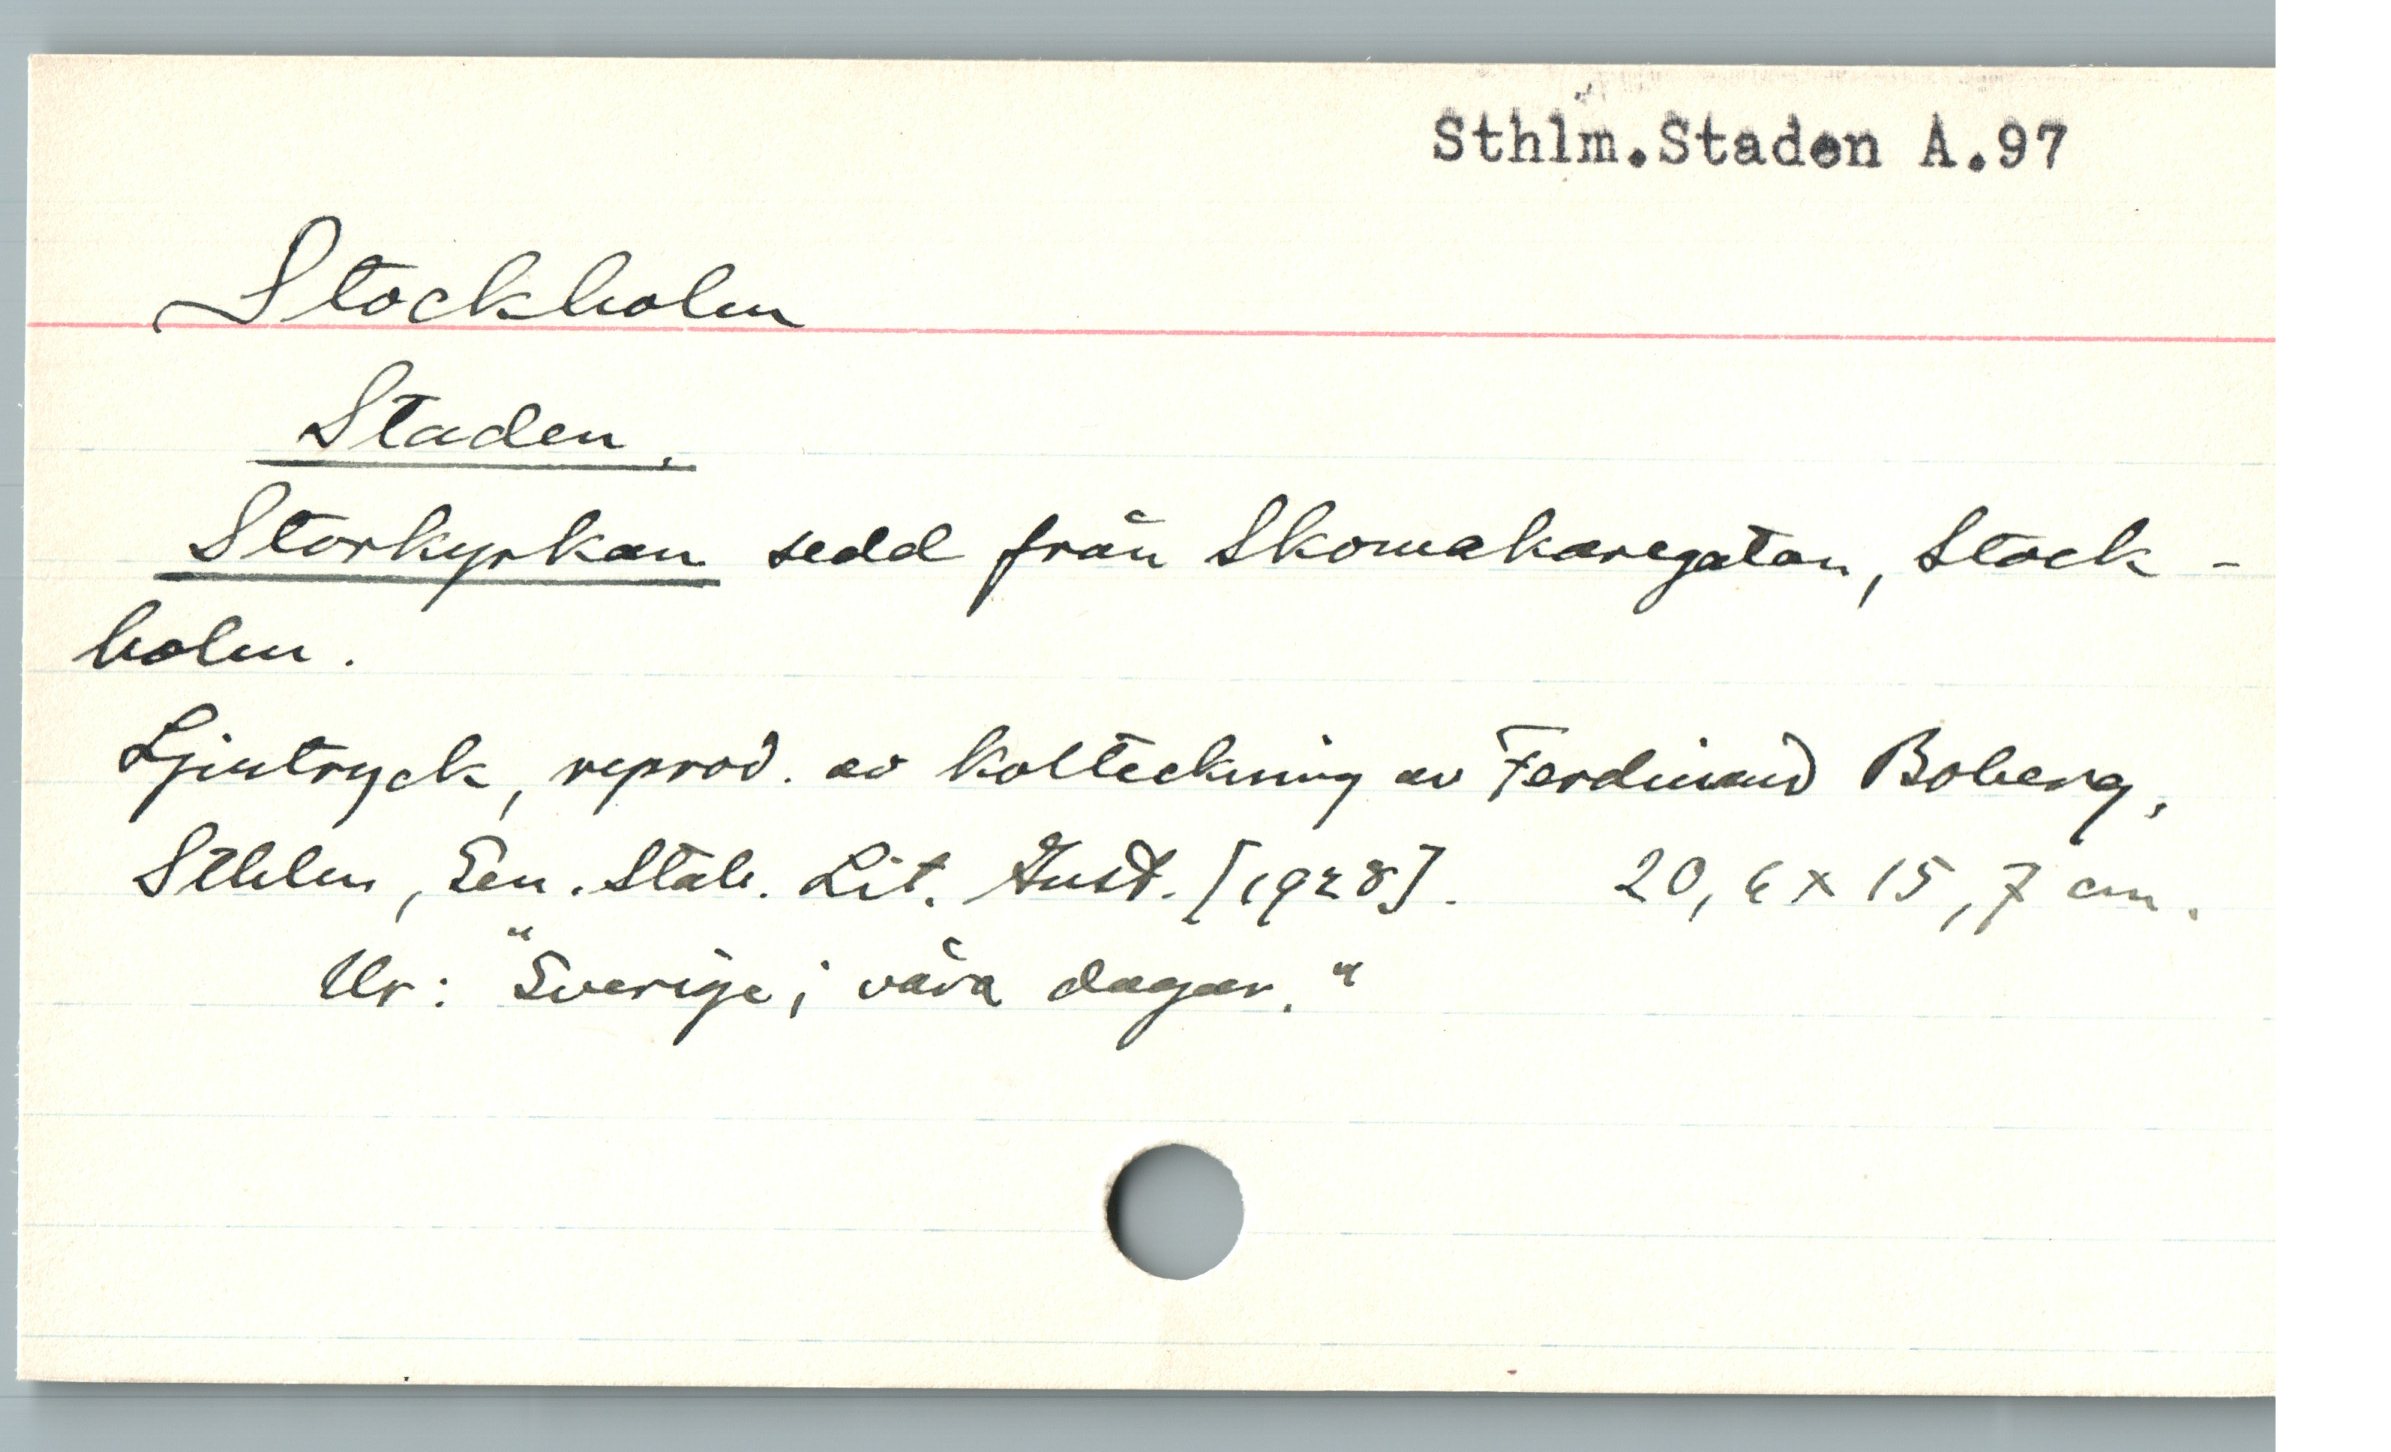 Sthlm.Staden A.97
Stockholm
Staden.
Storkyrkan sedd från Skomakaregatan, Stock-
holm.
Ljustryck, reprod. av kolteckning av Ferdinand Boberg,
Sthlm, Gen. Stab. Lit. Anst. [1928]. 20,6 x 15,7 cm.
Ur: "Sverige i våra dagar."